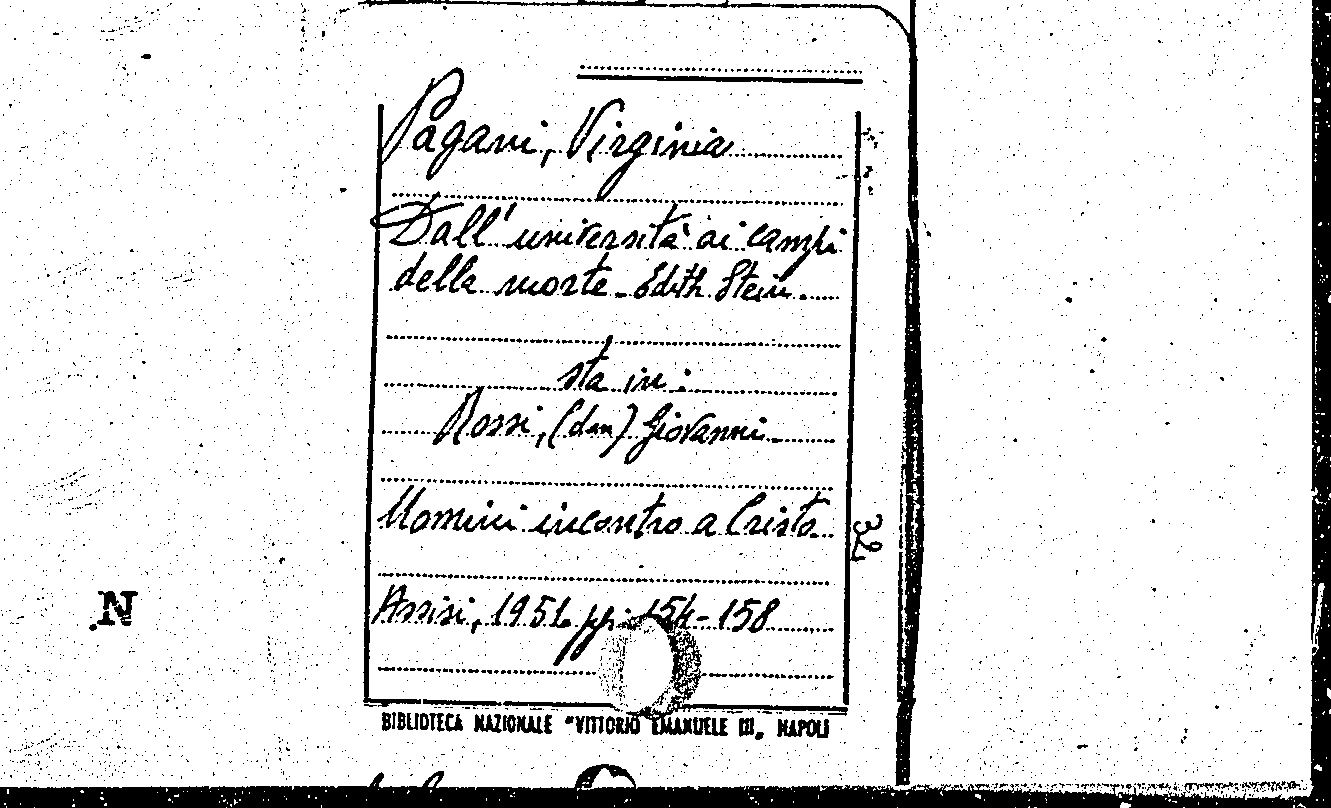 Pagani, Virginia
Dall'università ai campi
della morte - Edith Stein.
sta in:
Rossi, (don) Giovanni.
Uomini incontro a Cristo.
32
N.
Assisi, 1951 pp. 154-158
BIBLIOTECA NAZIONALE "VITTORIO EMANUELE III" NAPOLI